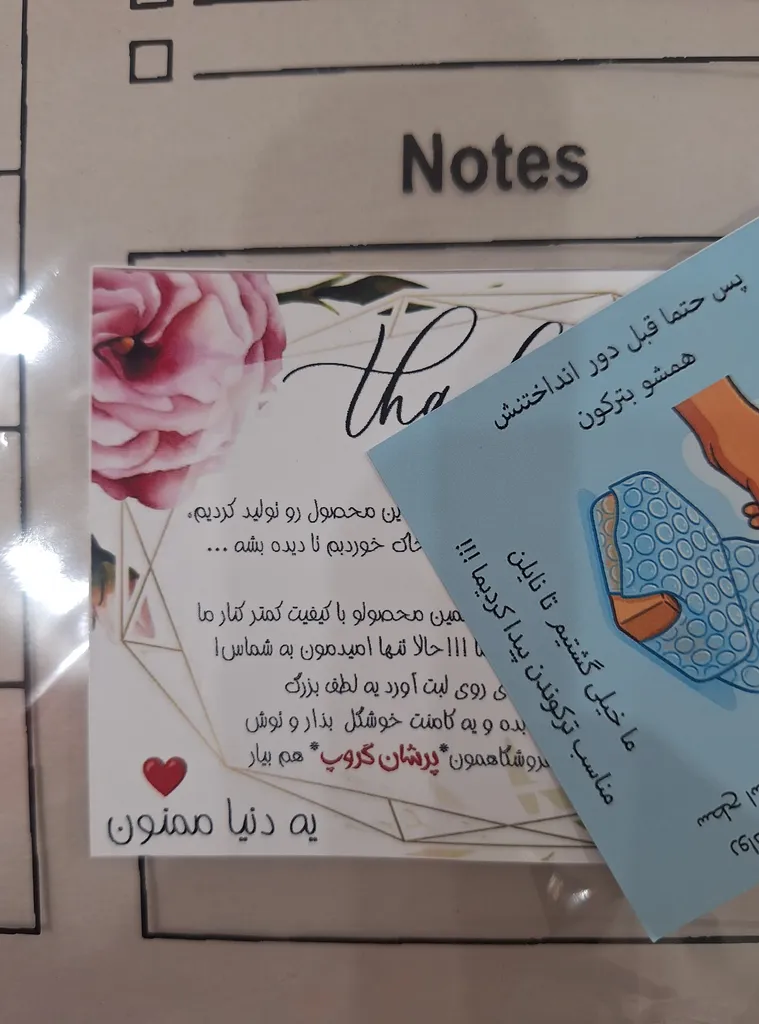 Notes
ین محصول رو تولید کردیم،
خاک خوردیم تا دیده بشه ...
مین محصولو با کیفیت کمتر کنار ما
ا !!! حالا تنها امیدمون به شماس!
ی روی لبت آورد یه لطف بزرگ
بده و یه کامنت خوشگل بذار و توش
روشگاهمون *پرشان گروپ* هم بیار
یه دنیا ممنون
پس حتما قبل دور انداختنش
همشو بترکون
ما خیلی گشتیم تا نایلن
مناسب ترکوندن پیدا کردیما !!!
سطح